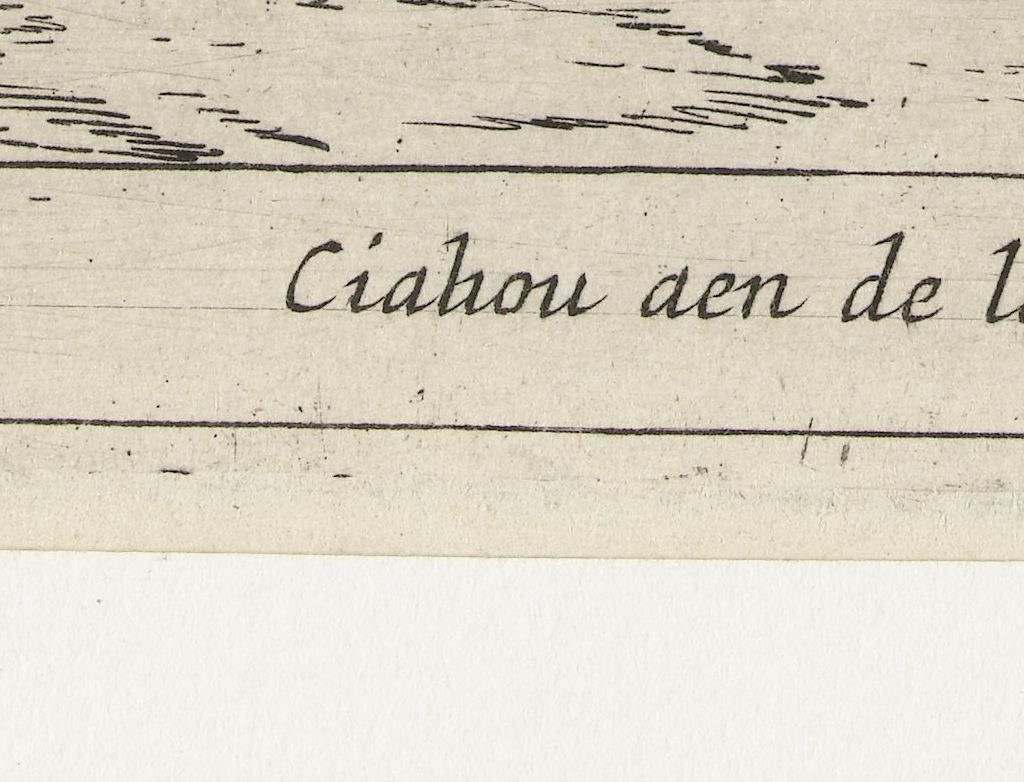 Ciahou aen de